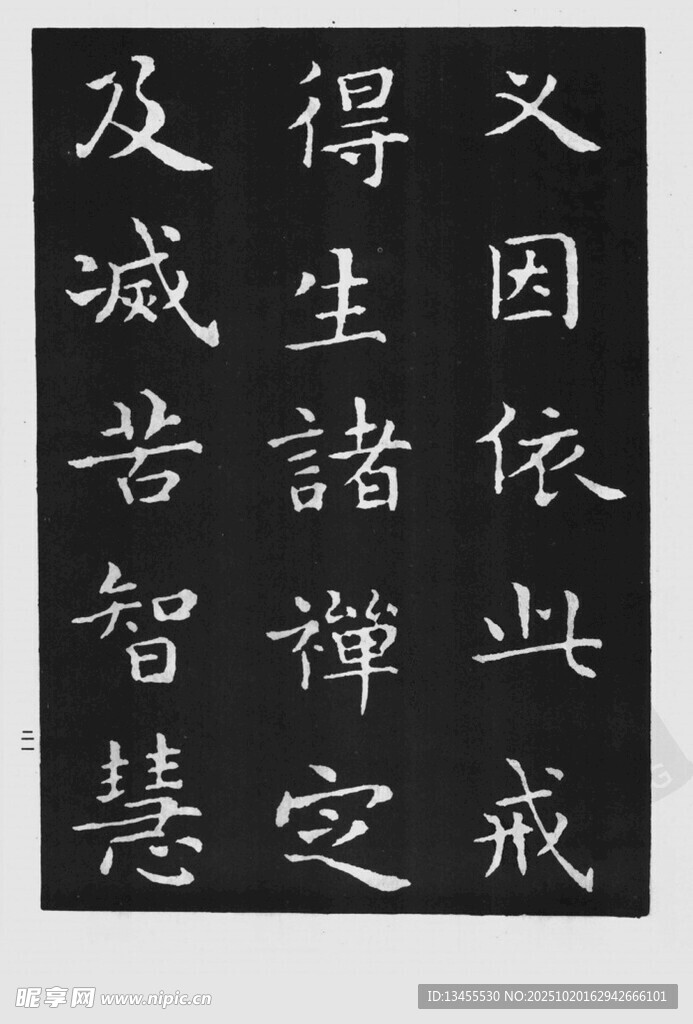 又因依此戒
得生諸禪定
及滅苦智慧
二一
昵享网 www.nipic.cn
ID:13455530 NO:20251020162942666101